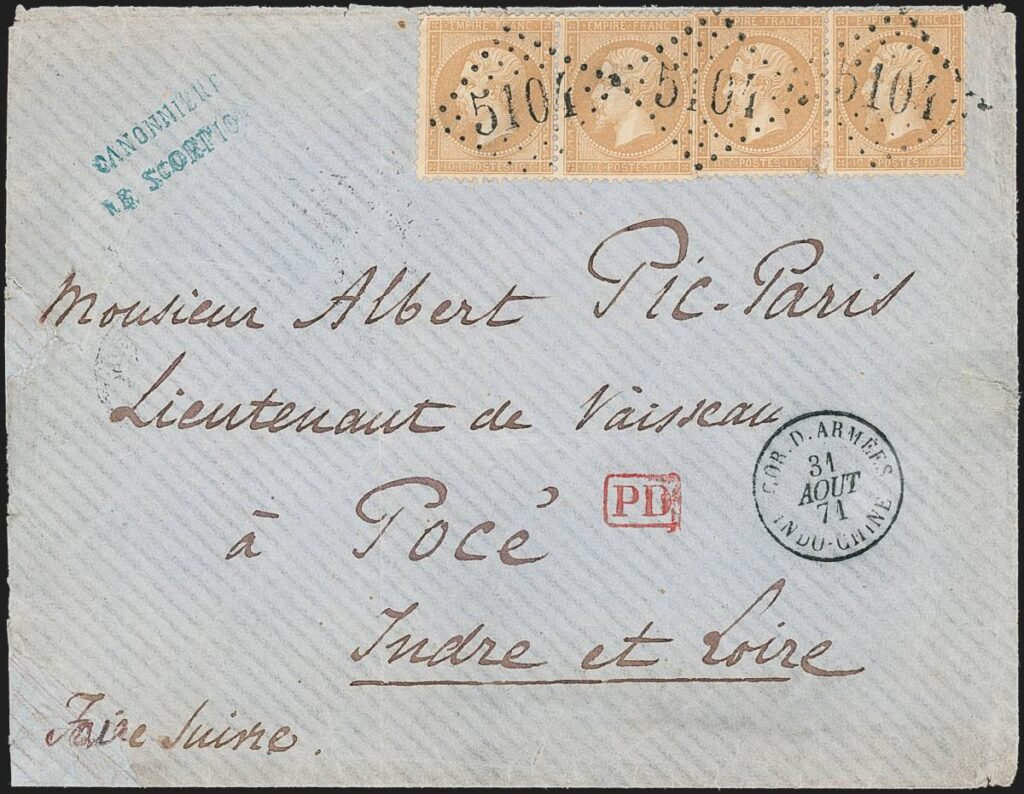 EMPIRE FRANC EMPIRE FRANC EMPIRE FRANC EMPIRE FRANC
5104 5104 5104
10 C POSTES 10 C 10 C POSTES 10 C 10 C POSTES 10 C 10 C POSTES 10 C
CANONNIERE
LE SCORPION
Monsieur Albert Pic-Paris
Lieutenant de Vaisseau
à Pocé
Indre et Loire
Faire suivre.
PD
COR. D. ARMÉES
31
AOUT
71
INDO-CHINE